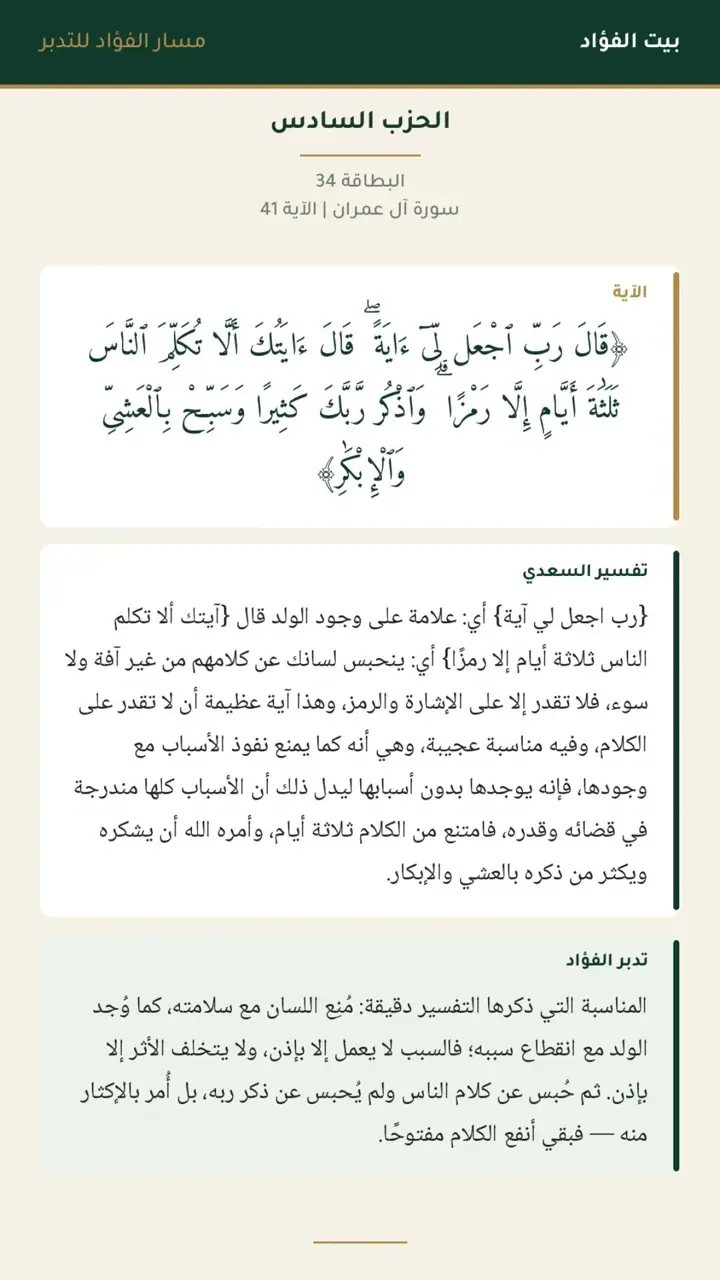 بيت الفؤاد
مسار الفؤاد للتدبر
الحزب السادس
البطاقة 34
سورة آل عمران | الآية 41
الآية
﴿قَالَ رَبِّ ٱجْعَل لِّىٓ ءَايَةً ۖ قَالَ ءَايَتُكَ أَلَّا تُكَلِّمَ ٱلنَّاسَ
ثَلَـٰثَةَ أَيَّامٍ إِلَّا رَمْزًا ۗ وَٱذْكُر رَّبَّكَ كَثِيرًا وَسَبِّحْ بِٱلْعَشِىِّ
وَٱلْإِبْكَـٰرِ﴾
تفسير السعدي
{رب اجعل لي آية} أي: علامة على وجود الولد قال {آيتك ألا تكلم
الناس ثلاثة أيام إلا رمزًا} أي: ينحبس لسانك عن كلامهم من غير آفة ولا
سوء، فلا تقدر إلا على الإشارة والرمز، وهذا آية عظيمة أن لا تقدر على
الكلام، وفيه مناسبة عجيبة، وهي أنه كما يمنع نفوذ الأسباب مع
وجودها، فإنه يوجدها بدون أسبابها ليدل ذلك أن الأسباب كلها مندرجة
في قضائه وقدره، فامتنع من الكلام ثلاثة أيام، وأمره الله أن يشكره
ويكثر من ذكره بالعشي والإبكار.
تدبر الفؤاد
المناسبة التي ذكرها التفسير دقيقة: مُنِع اللسان مع سلامته، كما وُجد
الولد مع انقطاع سببه؛ فالسبب لا يعمل إلا بإذن، ولا يتخلف الأثر إلا
بإذن. ثم حُبس عن كلام الناس ولم يُحبس عن ذكر ربه، بل أُمر بالإكثار
منه — فبقي أنفع الكلام مفتوحًا.